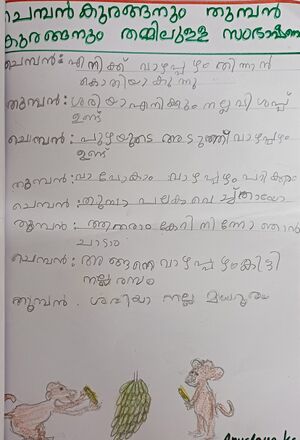 ചെമ്പൻ കുരങ്ങനും തുമ്പൻ
കുരങ്ങനും തമ്മിലുള്ള സംഭാഷണം
ചെമ്പൻ: എനിക്ക് വാഴപ്പഴം തിന്നൻ
കൊതിയാകുന്നു
തുമ്പൻ: ശരിയാ എനിക്കും നല്ല വിശപ്പ്
ഉണ്ട്
ചെമ്പൻ: പുഴയുടെ അടുത്ത് വാഴപ്പഴം
ഉണ്ട്
തുമ്പൻ: വാ പോകാം വാഴപ്പഴം പറിക്കാം
ചെമ്പൻ:
തുമ്പൻ: കേറി നിന്നോ ഞാൻ
ചാടാം
ചെമ്പൻ: അങ്ങനെ വാഴപ്പഴം കിട്ടി
നല്ല രസം
തുമ്പൻ. ശരിയാ നല്ല മധുരം